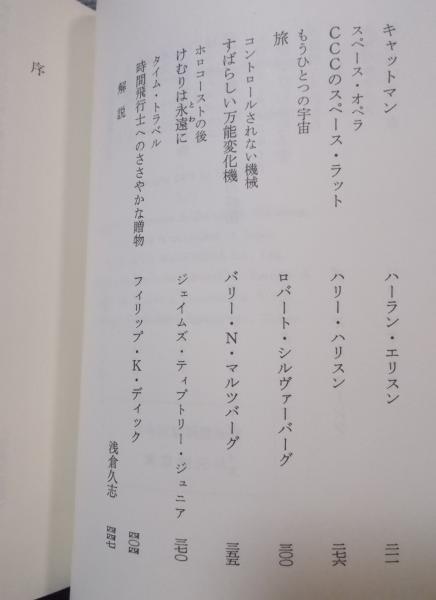 キャットマン ハーラン・エリスン 三一一
スペース・オペラ
CCCのスペース・ラット ハリー・ハリスン 二七六
もうひとつの宇宙
旅 ロバート・シルヴァーバーグ 三〇〇
コントロールされない機械
すばらしい万能変化機 バリー・N・マルツバーグ 三五五
ホロコーストの後
けむりは永遠に ジェイムズ・ティプトリー・ジュニア 三七〇
とわ
タイム・トラベル
時間飛行士へのささやかな贈物 フィリップ・K・ディック 四〇四
解説 浅倉久志 四四七
序